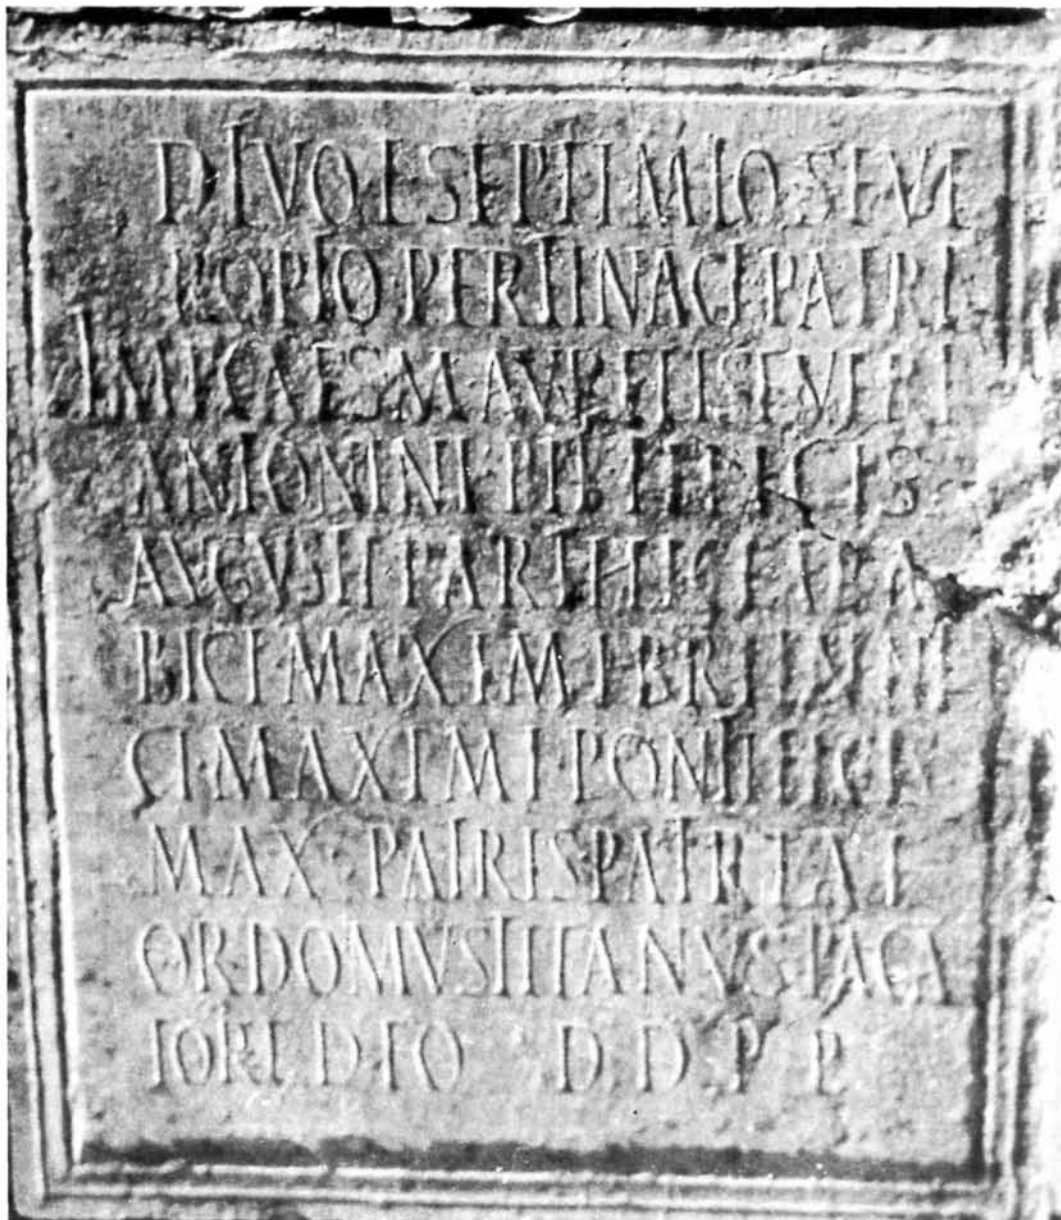 DIVO L SEPTIMIO SEVE
RO PIO PERTINACI PATRI
IMP CAES M AVRELI SEVERI
ANTONINI PII FELICIS
AVGVSTI PARTHICI ARA
BICI MAXIMI BRITANNI
CI MAXIMI PONTIFICIS
MAX PATRIS PATRIAE
ORDO MVSTITANVS
DEO D D P P